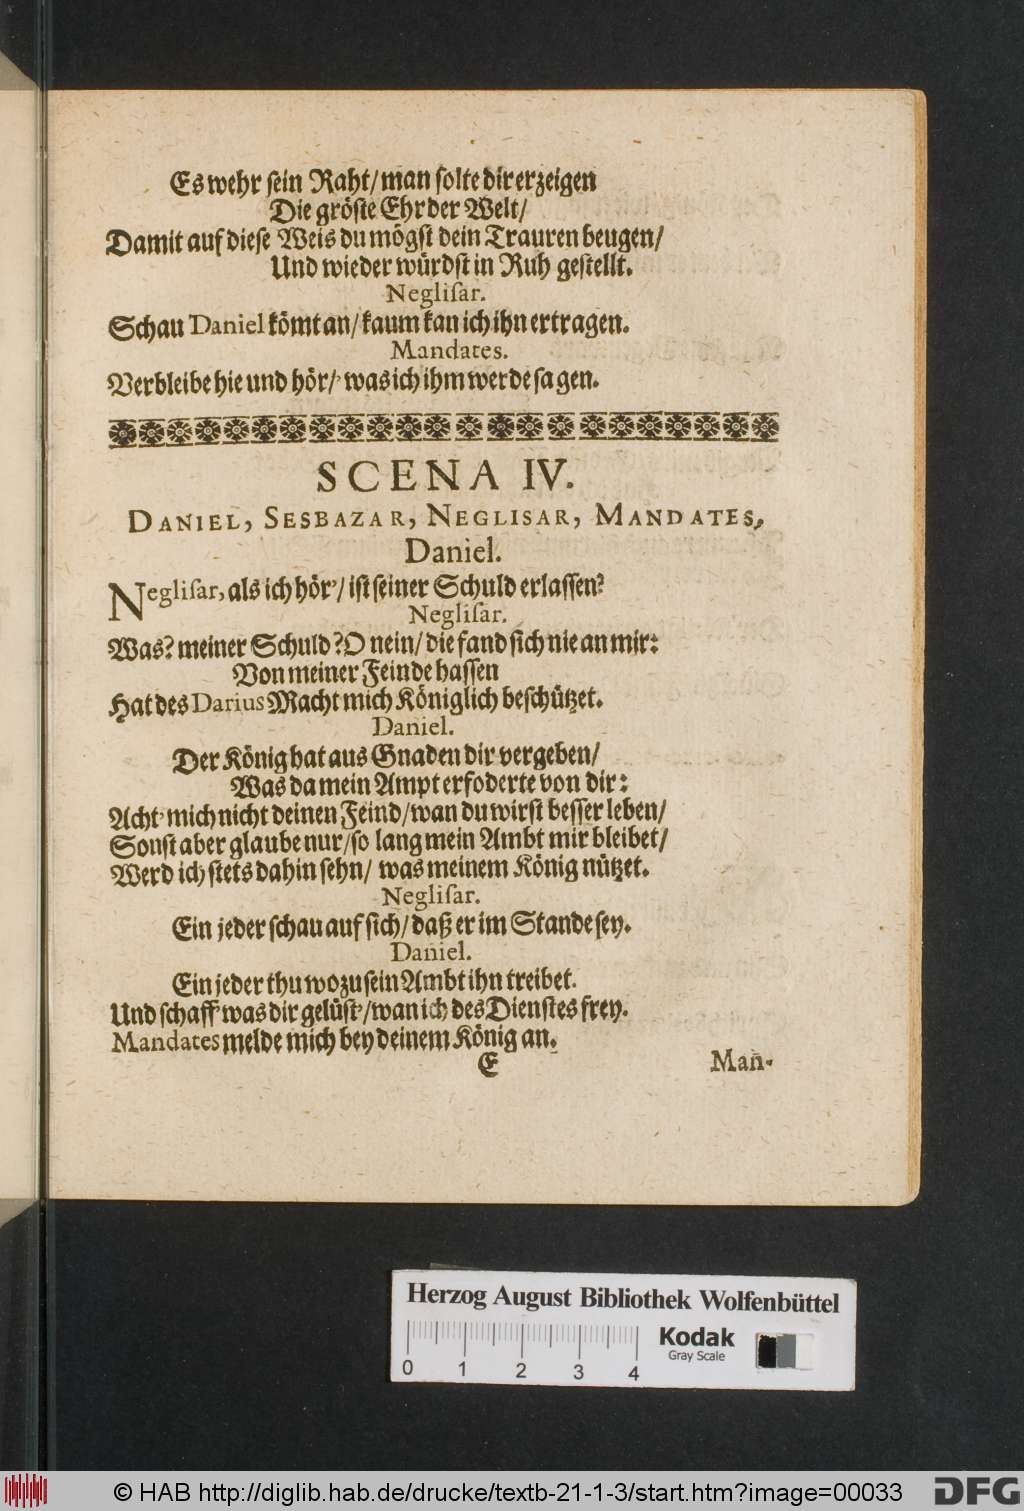 Es wehr sein Raht/man solte dir erzeigen
Die gröste Ehr der Welt/
Damit auf diese Weis du mögst dein Trauren beugen/
Und wieder würdst in Ruh gestellt.
Neglisar.
Schau Daniel kömt an/kaum kan ich ihn ertragen.
Mandates.
Verbleibe hie und hör/was ich ihm werde sagen.
SCENA IV.
DANIEL, SESBAZAR, NEGLISAR, MANDATES,
Daniel.
Neglisar, als ich hör'/ist seiner Schuld erlassen?
Neglisar.
Was? meiner Schuld? O nein/die fand sich nie an mir:
Von meiner Feinde hassen
Hat des Darius Macht mich Königlich beschützet.
Daniel.
Der König hat aus Gnaden dir vergeben/
Was da mein Ampt erfoderte von dir:
Acht' mich nicht deinen Feind/wan du wirst besser leben/
Sonst aber glaube nur/so lang mein Ambt mir bleibet/
Werd ich stets dahin sehn/ was meinem König nützet.
Neglisar.
Ein jeder schau auf sich/daß er im Stande sey.
Daniel.
Ein jeder thu wozu sein Ambt ihn treibet.
Und schaff' was dir gelüst'/wan ich des Dienstes frey.
Mandates melde mich bey deinem König an.
E Man-
Herzog August Bibliothek Wolfenbüttel
Kodak
Gray Scale
0 1 2 3 4
© HAB http://diglib.hab.de/drucke/textb-21-1-3/start.htm?image=00033
DFG